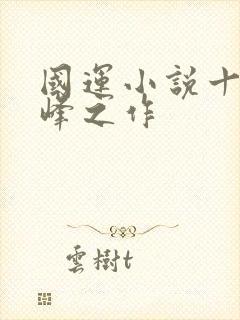 國運小説十
峰之作
雲樹t